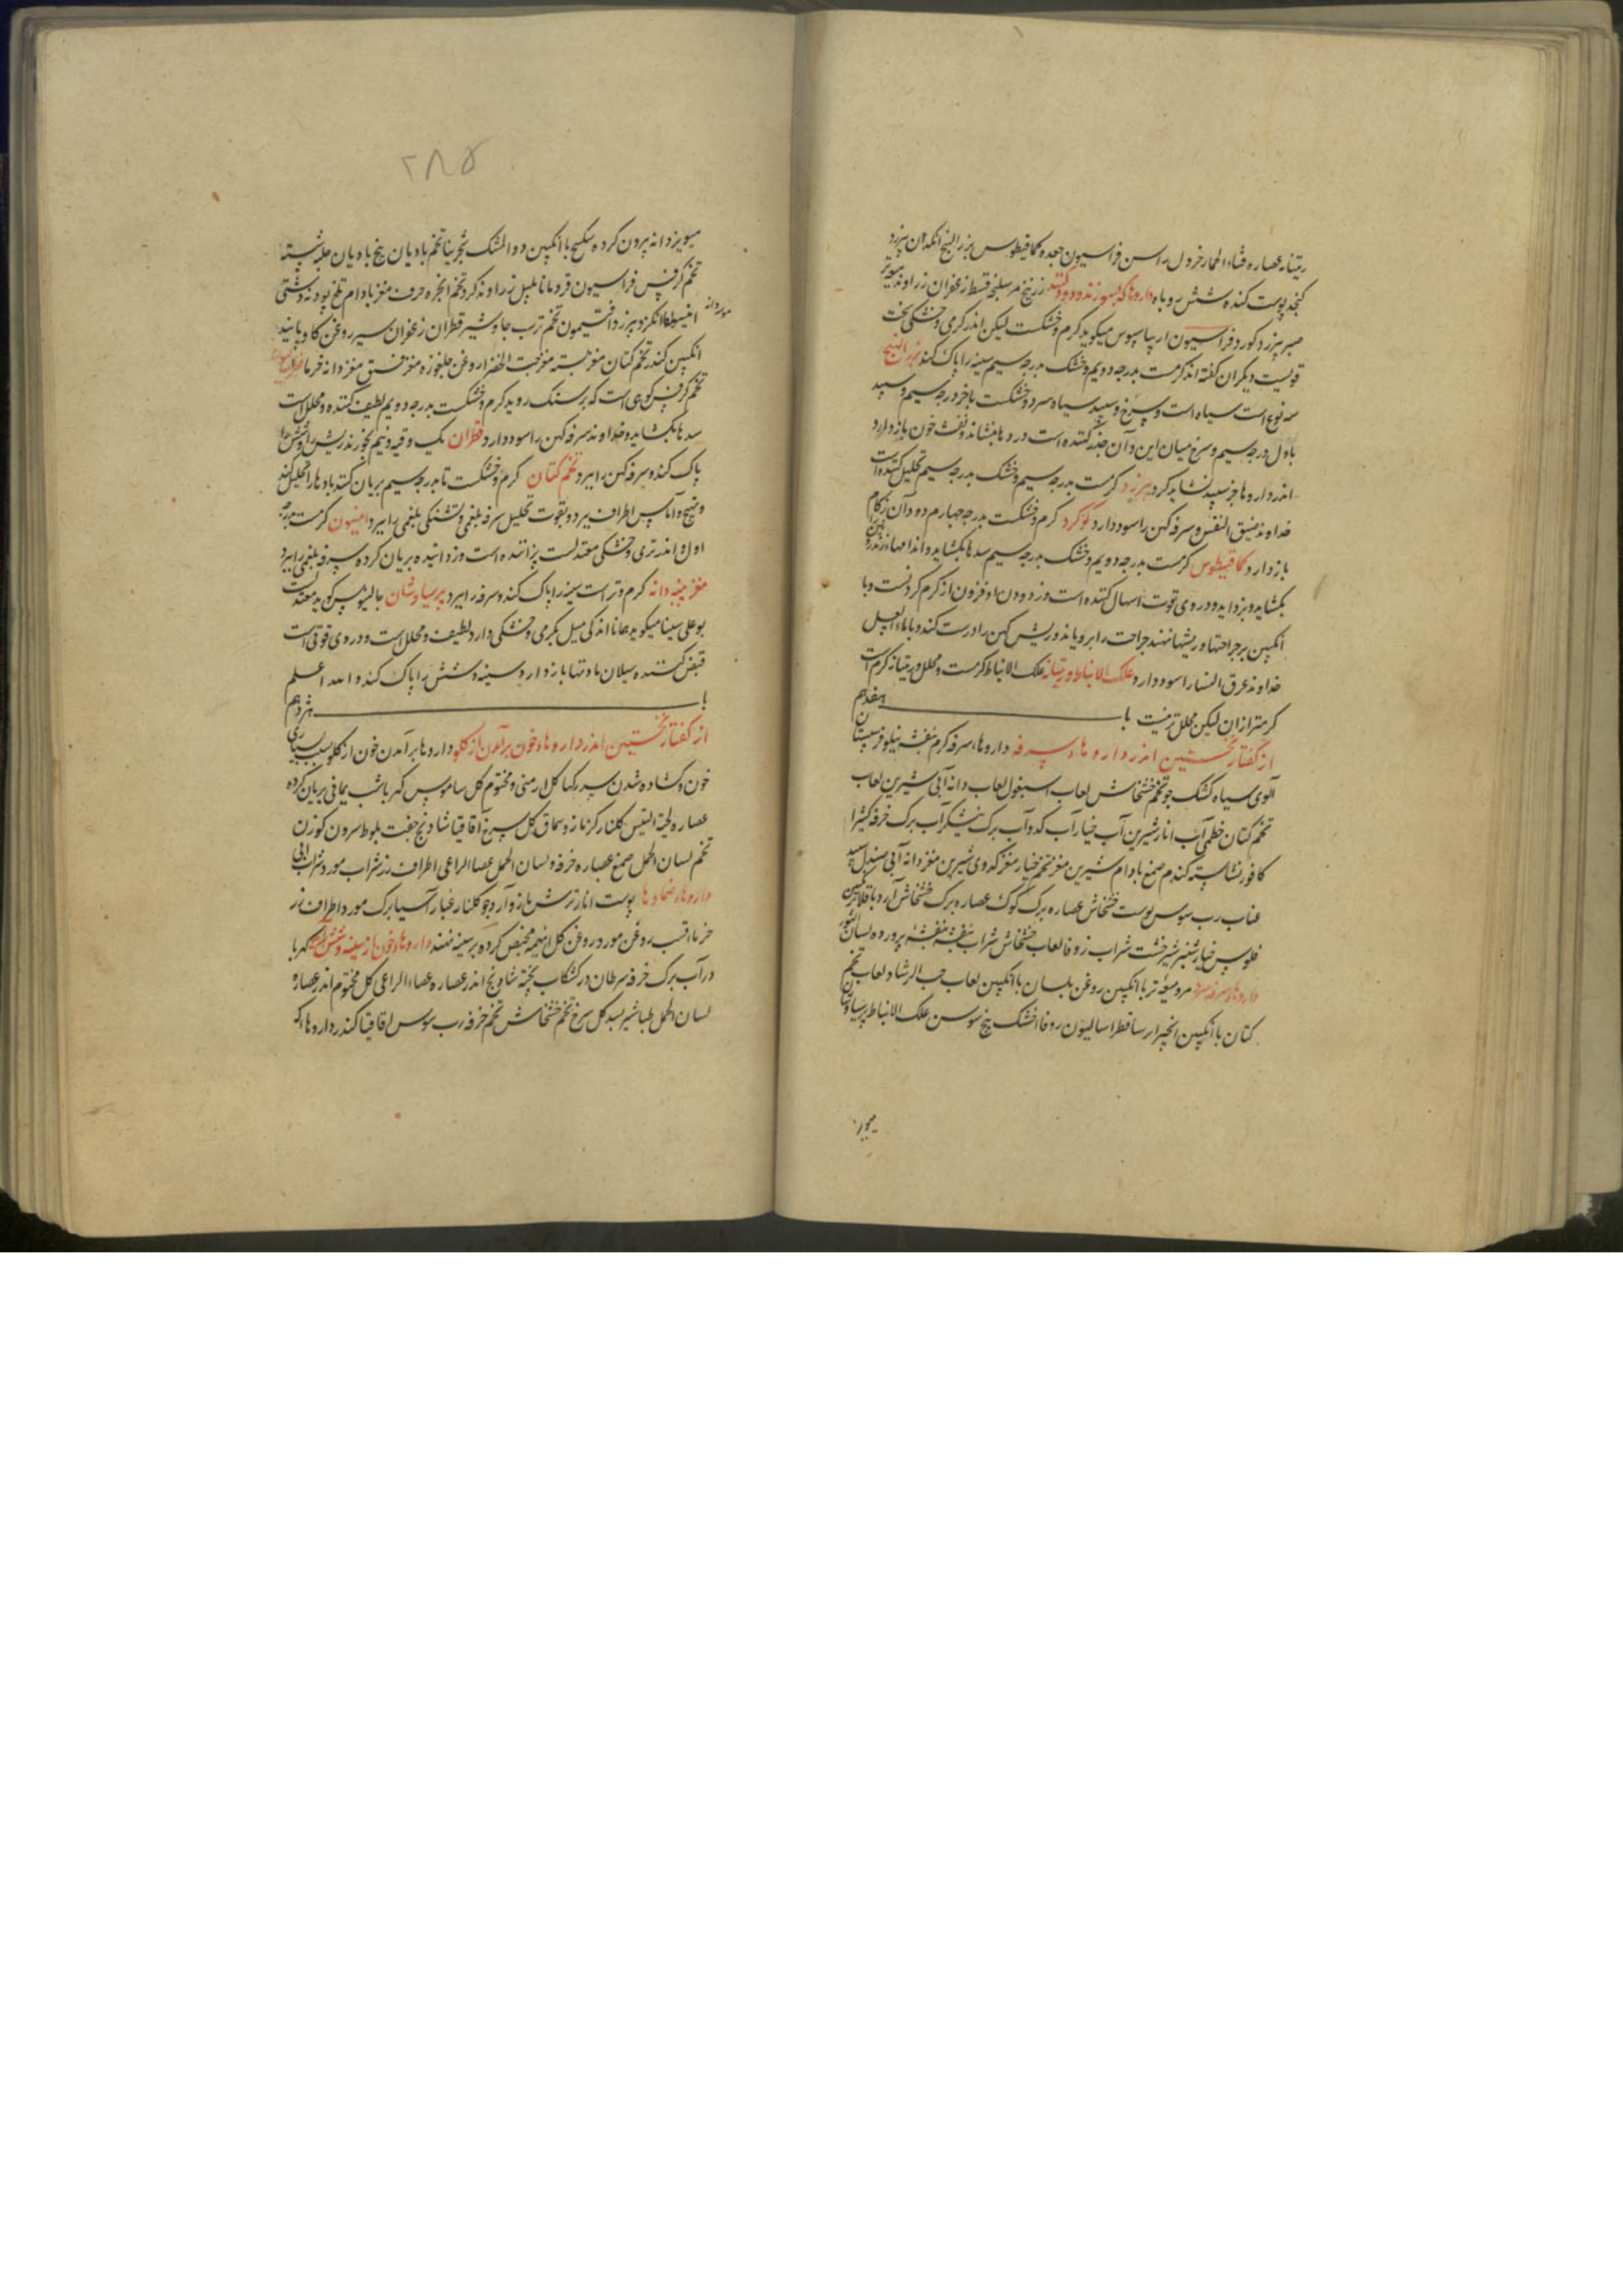 ریتیانه عصاره قثاء الحمار خردل راسن فراسیون جعده کمافیطوس بزر البنج انکدان بیرزد
کنجد پوست کنده شش روباه داروها که بسوزند و دود کنند زرنیخ مر سلیخه قسط زعفران زراوند میویز
صبر بیرزد کوکرد فراسیون اریباسیوس میکوید کرم و خشکست لیکن اندر کرمی و خشکی سخت
قویست دیکران کفته اند کرمست بدرجه دویم و خشک بدرجه سیم سینه را پاک کند بزر البنج
سه نوع است سیاه است و سرخ و سپید سیاه سرد و خشکست باخر درجه سیم و سپید
باول درجه سیم و سرخ میان این و آن خدر کننده است دردها بنشاند و نفث خون بازدارد
اندر داروها جز سپید نشاید کرد بیرزد کرمست بدرجه سیم و خشک بدرجه سیم تحلیل کننده است
خداوند ضیق النفس و سرفه کهن را سود دارد کوکرد کرم و خشکست بدرجه چهارم دود آن زکام
بازدارد کمافیطوس کرمست بدرجه دویم و خشک بدرجه سیم سدها بکشاید و اندامها اندرون
بکشاید و بزداید و در وی قوت اسهال کننده است و زدودن او فزون از کرم کردنست و با
انکبین بر جراحتها و ریشها نهند جراحت را برویاند و ریش کهن را درست کند و با ماء العسل
خداوند عرق النسا را سود دارد علک الانباط و ریتیانه علک الانباط کرمست و محلل و ریتیانه کرم است
کرمتر از آن لیکن محلل تر نیست با هفدهم
از کفتار نخستین اندر داروهاء سرفه داروها سرفه کرم بنفشه نیلوفر سپستان
آلوی سیاه کشک جو تخم خشخاش لعاب اسبغول لعاب دانه آبی شیرین لعاب
تخم کتان خطمی آب انار شیرین آب خیار آب کدو آب برک نیشکر آب برک خرفه کثیرا
کافور نشاسته کندم صمغ بادام شیرین مغز تخم خیار مغز کدوی شیرین مغز دانه آبی صندل سپید
عناب رب سوس پوست خشخاش عصاره برک کوک عصاره برک خشخاش آرد باقلا ترنجبین
فلوس خیارشنبر شیرخشت شراب زوفا لعاب خشخاش شراب بنفشه بنفشه پرورده لسان الثور
داروهاء سرفه سرد مر و میعه تر با انکبین روغن بلسان با انکبین لعاب حب الرشاد لعاب تخم
کتان با انکبین انجیر ایرسا قطراسالیون زوفا خشک بیخ سوسن علک الانباط پرسیاوشان
میویز
۲۸۵
میویز دانه بیرون کرده سکبینج با انکبین دوا المشک شجرینا تخم بادیان بیخ بادیان حلبه شبت
تخم کرفس فراسیون قردمانا پلپل زراوند کرد تخم انجره حرف مغز بادام تلخ پودنه دشتی
انکزد بیرزد افتیمون تخم ترب جاوشیر قطران زعفران سیر روغن کاو پانید
انکبین کندر تخم کتان مغز پسته مغز حبت الخضرا روغن جلغوزه مغز فستق مغز دانه خرما
تخم کرفس کوهی است که بر سنک روید کرم و خشکست بدرجه دویم لطیف کننده و محلل است
سدها بکشاید و خداوند سرفه کهن را سود دارد قطران یک وقیه و نیم بخورند ریش را و شش را
پاک کند و سرفه کهن را ببرد تخم کتان کرم و خشکست تا بدرجه سیم بریان کنند بادها را تحلیل کند
و تهیج و آماس اطراف ببرد و بقوت تحلیل سرفه بلغمی و تشنکی بلغمی را ببرد انیسون کرمست بدرجه
اول و اندر تری و خشکی معتدلست پزاننده است و زداینده بریان کرده سرفه بلغمی را ببرد
مغز پنبه دانه کرم و تر است سینه را پاک کند و سرفه را ببرد پرسیاوشان جالینوس کوید معتدلست
بوعلی سینا میکوید همانا اندکی میل بکرمی و خشکی دارد لطیف و محلل است و در وی قوتی است
قبض کننده سیلان مادتها بازدارد و سینه و شش را پاک کند و الله اعلم
با هژدهم
از کفتار نخستین اندر داروهاء خون برآمدن از کلو داروها برآمدن خون از کلو بسبب بسیاری
خون و کشاده شدن سر رکها کل ارمنی و مختوم کل ساموس کهربا شب یمانی بریان کرده
عصاره لحیة التیس کلنار کزمازو سماق کل سرخ آقاقیا شادنج جفت بلوط سرون کوزن
تخم لسان الحمل صمغ عصاره خرفه و لسان الحمل عصا الراعی اطراف رز شراب مورد شراب آبی
داروهاء ضمادها پوست انار ترش مازو آرد جو کلنار غبار آسیا برک مورد اطراف رز
خرماء قسب روغن مورد روغن کل اینهمه مخبص کرده بر سینه نهند داروهاء خون از سینه و شش کهربا
در آب برک خرفه سرطان در کشکاب پخته شادنج اندر عصاره عصاء الراعی کل مختوم اندر عصاره
لسان الحمل طباشیر بسد کل سرخ تخم خشخاش تخم خرفه رب سوس اقاقیا کندر داروهاء که